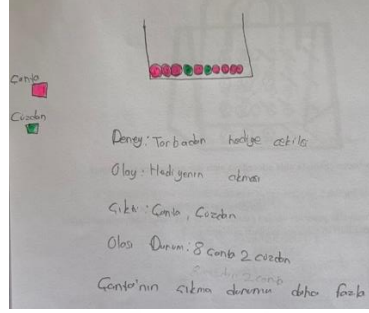 Çanta
Cüzdan
Deney: Torbadan hediye çekiliş
Olay: Hediyenin çıkması
Çıktı: Çanta, Cüzdan
Olası Durum: 8 çanta 2 cüzdan
Çanta'nın çıkma durumu daha fazla